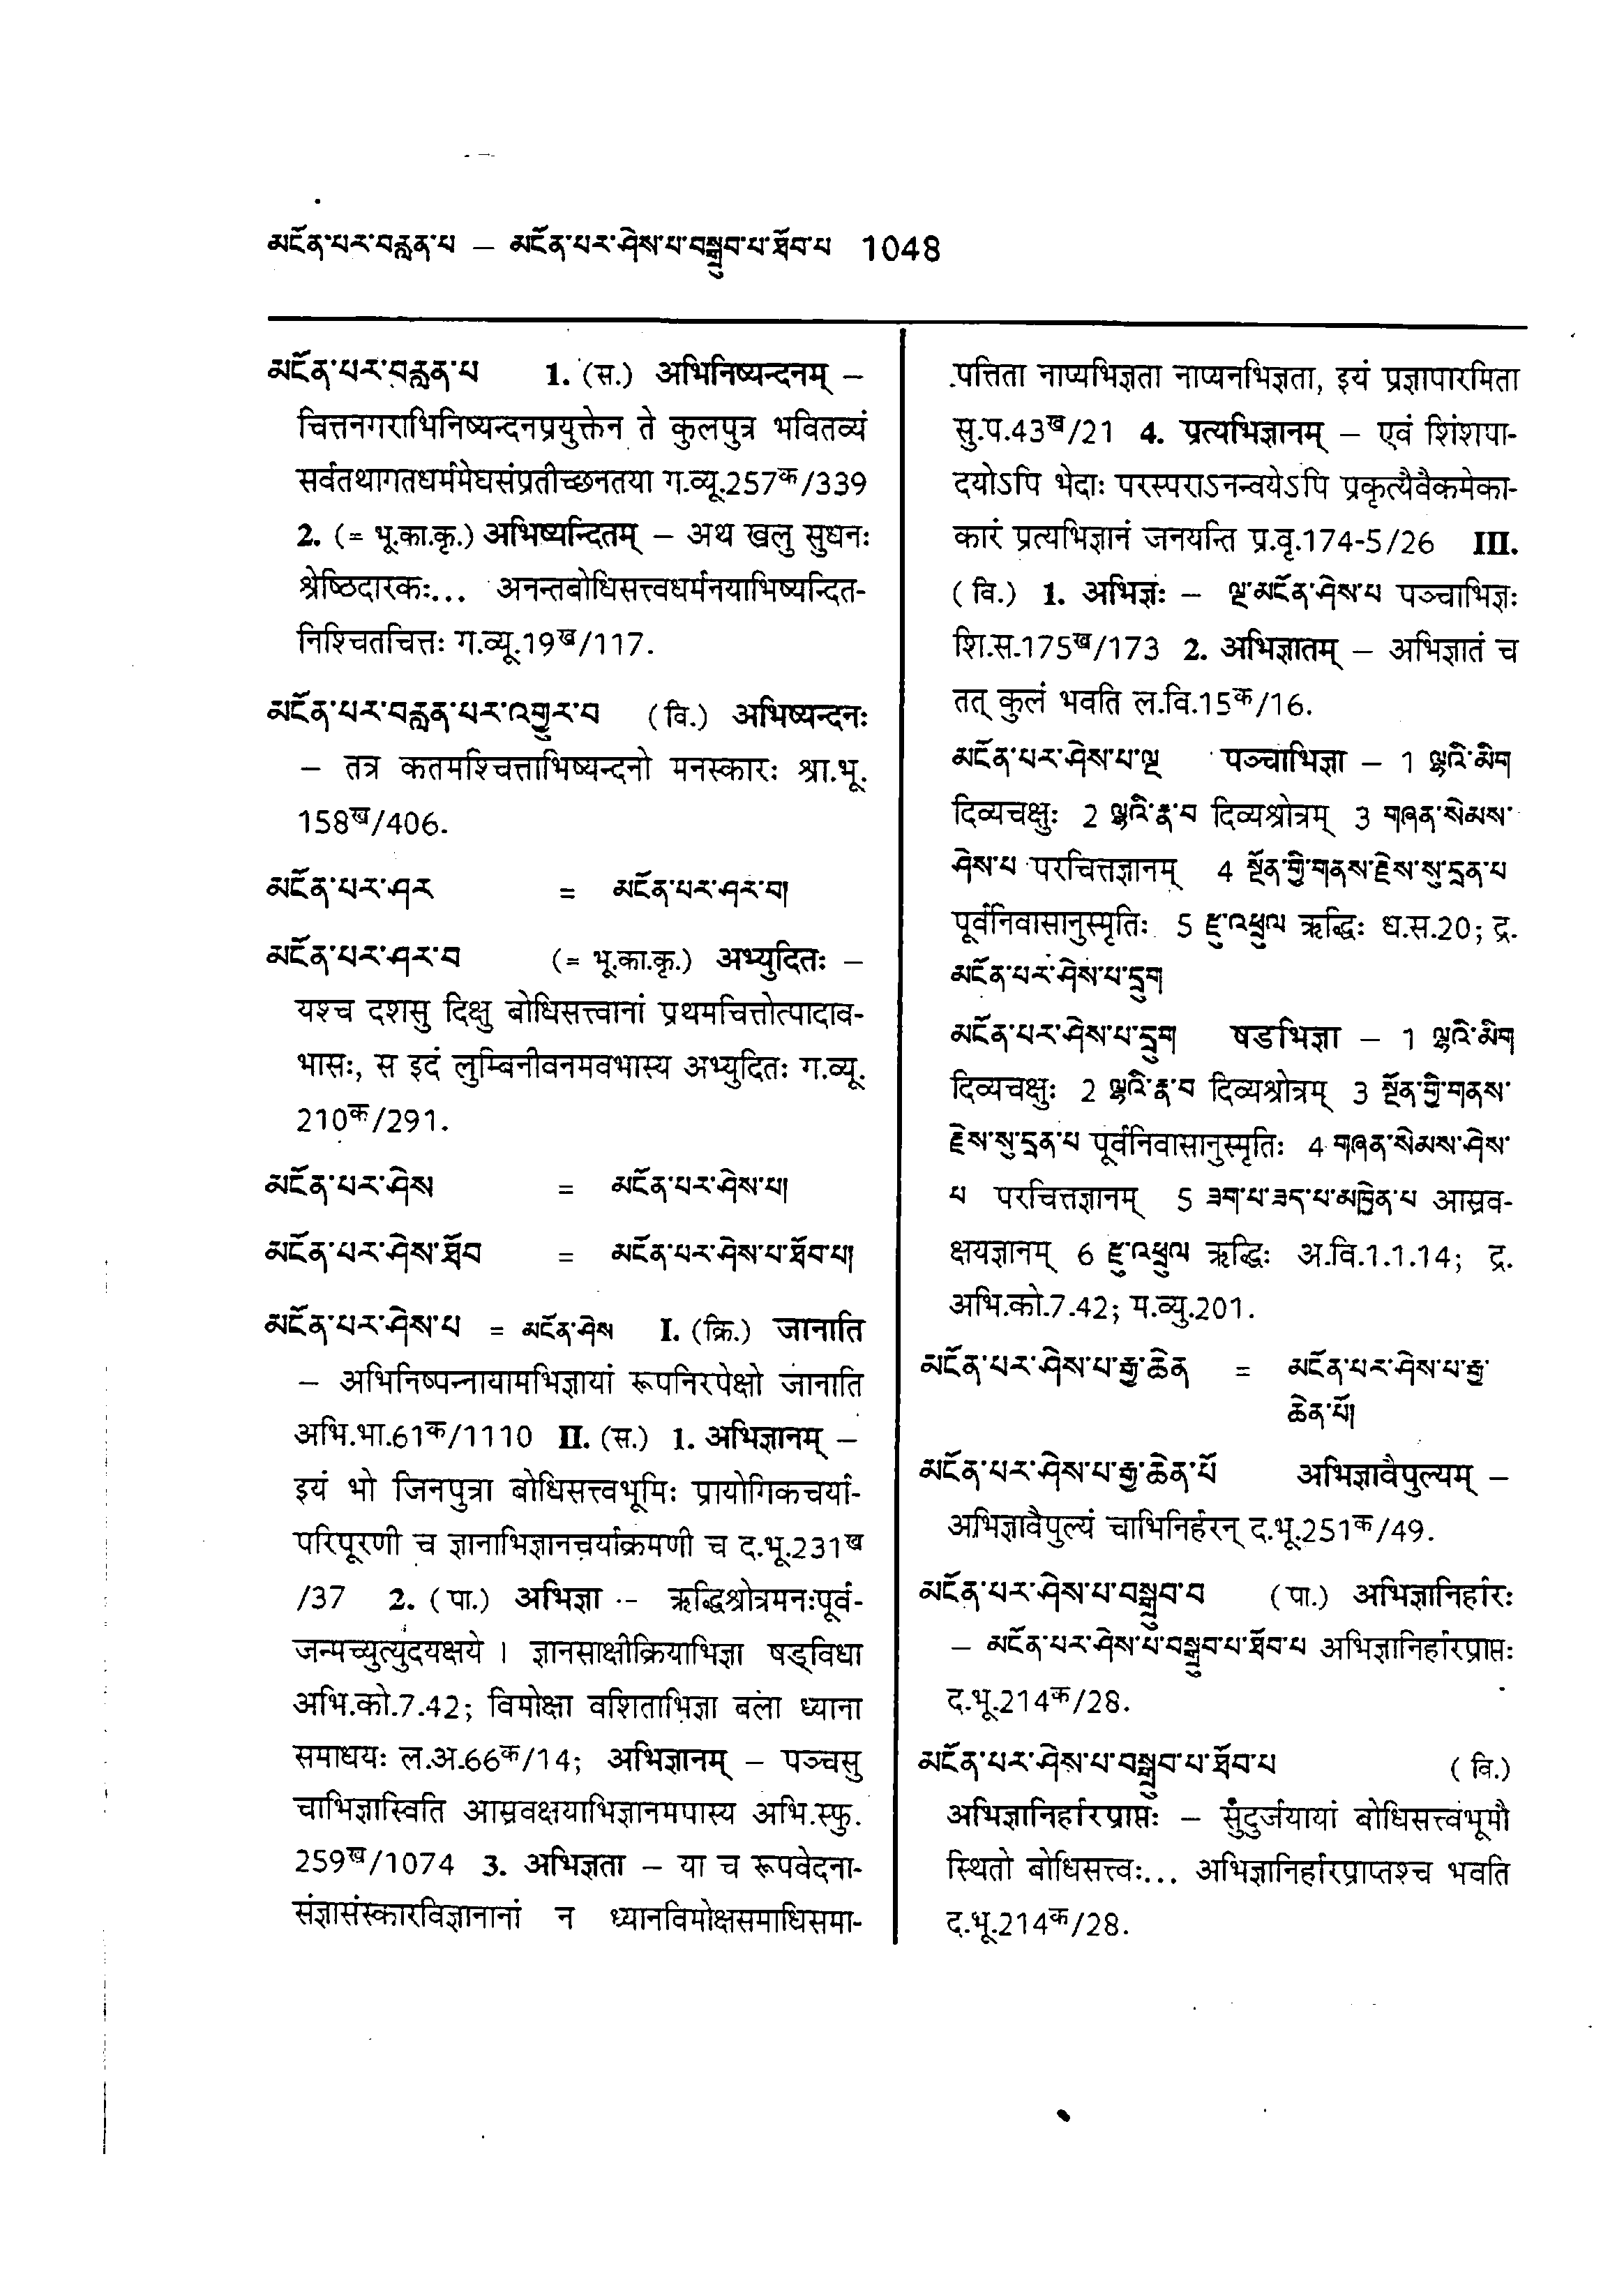 མངོན་པར་བརླན་པ – མངོན་པར་ཤེས་པ་བསྒྲུབ་པ་ཐོབ་པ 1048
མངོན་པར་བརླན་པ 1. (स.) अभिनिष्यन्दनम् –
चित्तनगराभिनिष्यन्दनप्रयुक्तेन ते कुलपुत्र भवितव्यं
सर्वतथागतधर्ममेघसंप्रतीच्छनतया ग.व्यू.257क/339
2. (= भू.का.कृ.) अभिष्यन्दितम् – अथ खलु सुधनः
श्रेष्ठिदारकः... अनन्तबोधिसत्त्वधर्मनयाभिष्यन्दित-
निश्चितचित्तः ग.व्यू.19ख/117.
མངོན་པར་བརླན་པར་འགྱུར་བ (वि.) अभिष्यन्दनः
– तत्र कतमश्चित्ताभिष्यन्दनो मनस्कारः श्रा.भू.
158ख/406.
མངོན་པར་ཤར = མངོན་པར་ཤར་བ།
མངོན་པར་ཤར་བ (= भू.का.कृ.) अभ्युदितः –
यश्च दशसु दिक्षु बोधिसत्त्वानां प्रथमचित्तोत्पादाव-
भासः, स इदं लुम्बिनीवनमवभास्य अभ्युदितः ग.व्यू.
210क/291.
མངོན་པར་ཤེས = མངོན་པར་ཤེས་པ།
མངོན་པར་ཤེས་ཐོབ = མངོན་པར་ཤེས་པ་ཐོབ་པ།
མངོན་པར་ཤེས་པ = མངོན་ཤེས I. (क्रि.) जानाति
– अभिनिष्पन्नायामभिज्ञायां रूपनिरपेक्षो जानाति
अभि.भा.61क/1110 II. (स.) 1. अभिज्ञानम् –
इयं भो जिनपुत्रा बोधिसत्त्वभूमिः प्रायोगिकचर्या-
परिपूरणी च ज्ञानाभिज्ञानचर्याक्रमणी च द.भू.231ख
/37 2. (पा.) अभिज्ञा – ऋद्धिश्रोत्रमनःपूर्व-
जन्मच्युत्युदयक्षये । ज्ञानसाक्षीक्रियाभिज्ञा षड्विधा
अभि.को.7.42; विमोक्षा वशिताभिज्ञा बला ध्याना
समाधयः ल.अ.66क/14; अभिज्ञानम् – पञ्चसु
चाभिज्ञास्विति आस्रवक्षयाभिज्ञानमपास्य अभि.स्फु.
259ख/1074 3. अभिज्ञता – या च रूपवेदना-
संज्ञासंस्कारविज्ञानानां न ध्यानविमोक्षसमाधिसमा-
पत्तिता नाप्यभिज्ञता नाप्यनभिज्ञता, इयं प्रज्ञापारमिता
सु.प.43ख/21 4. प्रत्यभिज्ञानम् – एवं शिंशपा-
दयोऽपि भेदाः परस्पराऽनन्वयेऽपि प्रकृत्यैवैकमेका-
कारं प्रत्यभिज्ञानं जनयन्ति प्र.वृ.174-5/26 III.
(वि.) 1. अभिज्ञः – ལྔ་མངོན་ཤེས་པ पञ्चाभिज्ञः
शि.स.175ख/173 2. अभिज्ञातम् – अभिज्ञातं च
तत् कुलं भवति ल.वि.15क/16.
མངོན་པར་ཤེས་པ་ལྔ पञ्चाभिज्ञा – 1 ལྷའི་མིག
दिव्यचक्षुः 2 ལྷའི་རྣ་བ दिव्यश्रोत्रम् 3 གཞན་སེམས་
ཤེས་པ परचित्तज्ञानम् 4 སྔོན་གྱི་གནས་རྗེས་སུ་དྲན་པ
पूर्वनिवासानुस्मृतिः 5 རྫུ་འཕྲུལ ऋद्धिः ध.स.20; द्र.
མངོན་པར་ཤེས་པ་དྲུག
མངོན་པར་ཤེས་པ་དྲུག षडभिज्ञा – 1 ལྷའི་མིག
दिव्यचक्षुः 2 ལྷའི་རྣ་བ दिव्यश्रोत्रम् 3 སྔོན་གྱི་གནས་
རྗེས་སུ་དྲན་པ पूर्वनिवासानुस्मृतिः 4 གཞན་སེམས་ཤེས་
པ परचित्तज्ञानम् 5 ཟག་པ་ཟད་པ་མཁྱེན་པ आस्रव-
क्षयज्ञानम् 6 རྫུ་འཕྲུལ ऋद्धिः अ.वि.1.1.14; द्र.
अभि.को.7.42; म.व्यु.201.
མངོན་པར་ཤེས་པ་རྒྱ་ཆེན = མངོན་པར་ཤེས་པ་རྒྱ་
ཆེན་པོ།
མངོན་པར་ཤེས་པ་རྒྱ་ཆེན་པོ अभिज्ञावैपुल्यम् –
अभिज्ञावैपुल्यं चाभिनिर्हरन् द.भू.251क/49.
མངོན་པར་ཤེས་པ་བསྒྲུབ་པ (पा.) अभिज्ञानिर्हारः
– མངོན་པར་ཤེས་པ་བསྒྲུབ་པ་ཐོབ་པ अभिज्ञानिर्हारप्राप्तः
द.भू.214क/28.
མངོན་པར་ཤེས་པ་བསྒྲུབ་པ་ཐོབ་པ (वि.)
अभिज्ञानिर्हारप्राप्तः – सुदुर्जयायां बोधिसत्त्वभूमौ
स्थितो बोधिसत्त्वः... अभिज्ञानिर्हारप्राप्तश्च भवति
द.भू.214क/28.